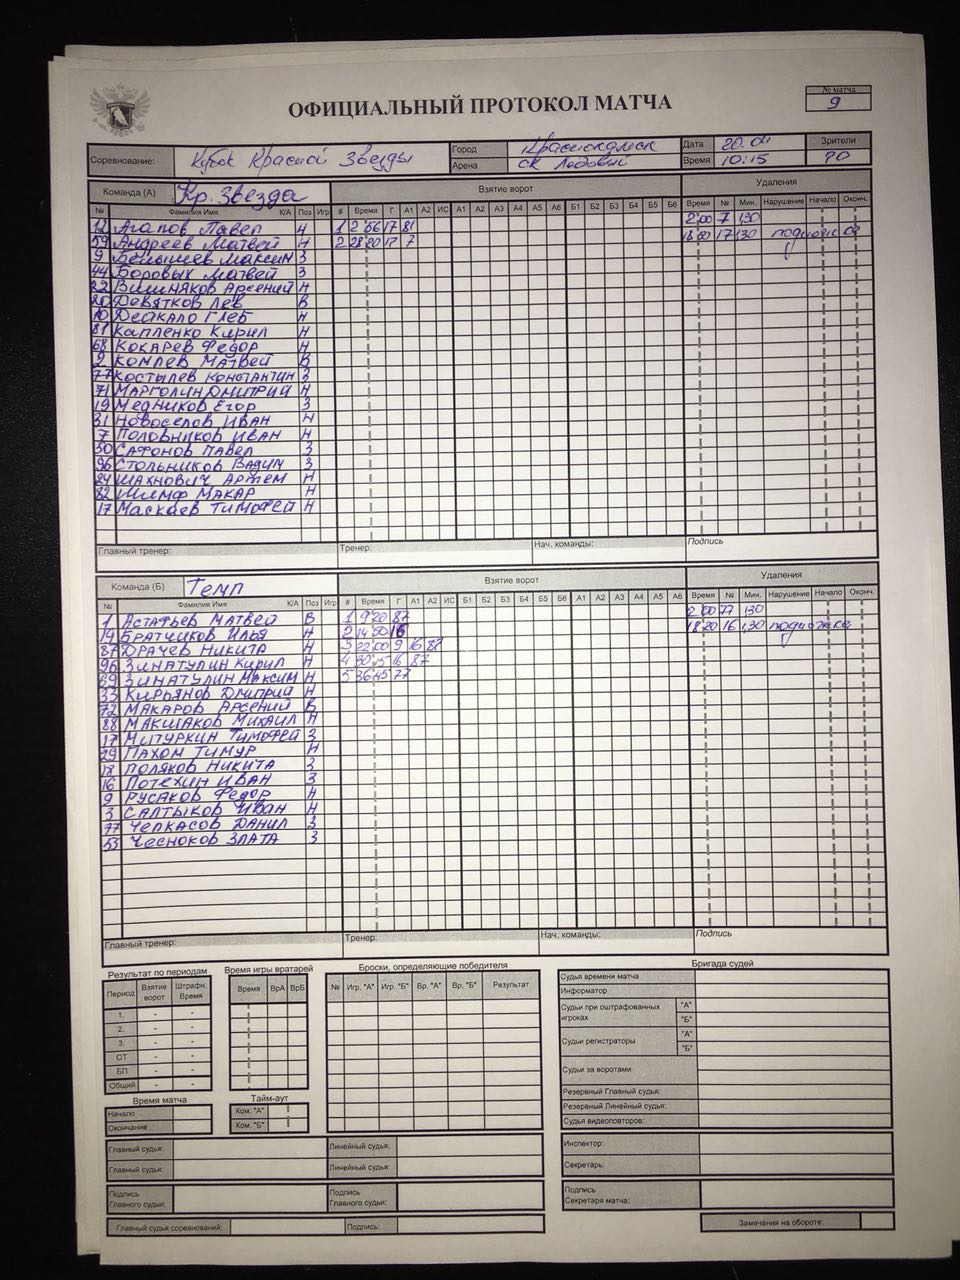 ОФИЦИАЛЬНЫЙ ПРОТОКОЛ МАТЧА
№ матча
9
Соревнование: Кубок Красной Звезды
Город Краснокамск
Дата 20.04
Зрители
Арена СК Ледовый
Время 10:15
90
Команда (А) Кр. Звезда
Взятие ворот
Удаления
№ Фамилия Имя К/А Поз Игр # Время Г А1 А2 ИС А1 А2 А3 А4 А5 А6 Б1 Б2 Б3 Б4 Б5 Б6 Время № Мин. Нарушение Начало Оконч.
12 Агапов Павел Н 1 2 56 17 81 2 00 7 1,30
59 Андреев Матвей Н 2 28 20 17 7 18 20 17 1,30 подножка
9 Бельшев Максим З
44 Боровых Матвей З
22 Вишняков Арсений Н
20 Девятков Лев В
10 Дейкало Глеб Н
81 Капленко Кирил Н
68 Кокарев Федор Н
2 Комлев Матвей В
77 Костылев Константин З
71 Марголин Дмитрий Н
19 Медников Егор З
31 Новоселов Иван Н
7 Половников Иван Н
50 Сафонов Павел З
96 Стольников Вадим З
24 Шахнович Артем Н
82 Шимф Макар Н
17 Маскаев Тимофей Н
Главный тренер: Тренер: Нач. команды: Подпись
Команда (Б) Темп
Взятие ворот
Удаления
№ Фамилия Имя К/А Поз Игр # Время Г А1 А2 ИС Б1 Б2 Б3 Б4 Б5 Б6 А1 А2 А3 А4 А5 А6 Время № Мин. Нарушение Начало Оконч.
1 Астафьев Матвей В 1 9 20 87 2 00 77 1,30
19 Братчиков Илья Н 2 14 50 16 18 20 16 1,30 подножка
87 Драчев Никита Н 3 22 00 9 16 87
96 Зинатулин Кирил Н 4 30 15 16 87
69 Зинатулин Максим Н 5 36 45 77
33 Кирьянов Дмитрий Н
72 Макаров Арсений В
88 Макшаков Михаил Н
17 Митуркин Тимофей З
29 Пахом Тимур Н
18 Поляков Никита З
16 Потехин Иван З
9 Русаков Федор Н
3 Салтыков Иван Н
77 Чепкасов Данил З
55 Чесноков Злата З
Главный тренер: Тренер: Нач. команды: Подпись
Результат по периодам
Время игры вратарей
Броски, определяющие победителя
Бригада судей
Период Взятие ворот Штрафн. Время
Время ВрА ВрБ
№ Игр. "А" Игр. "Б" Вр. "А" Вр. "Б" Результат
1. - -
2. - -
3. - -
ОТ - -
БП - -
Общий - -
Судья времени матча
Информатор
Судьи при оштрафованных игроках "А" "Б"
Судьи регистраторы "А" "Б"
Судьи за воротами
Резервный Главный судья:
Резервный Линейный судья:
Судья видеоповторов:
Время матча
Начало
Окончание
Тайм-аут
Ком. "А"
Ком. "Б"
Главный судья: Линейный судья:
Главный судья: Линейный судья:
Инспектор:
Секретарь:
Подпись Главного судьи:
Подпись Главного судьи:
Подпись Секретаря матча:
Главный судья соревнований: Подпись:
Замечания на обороте: